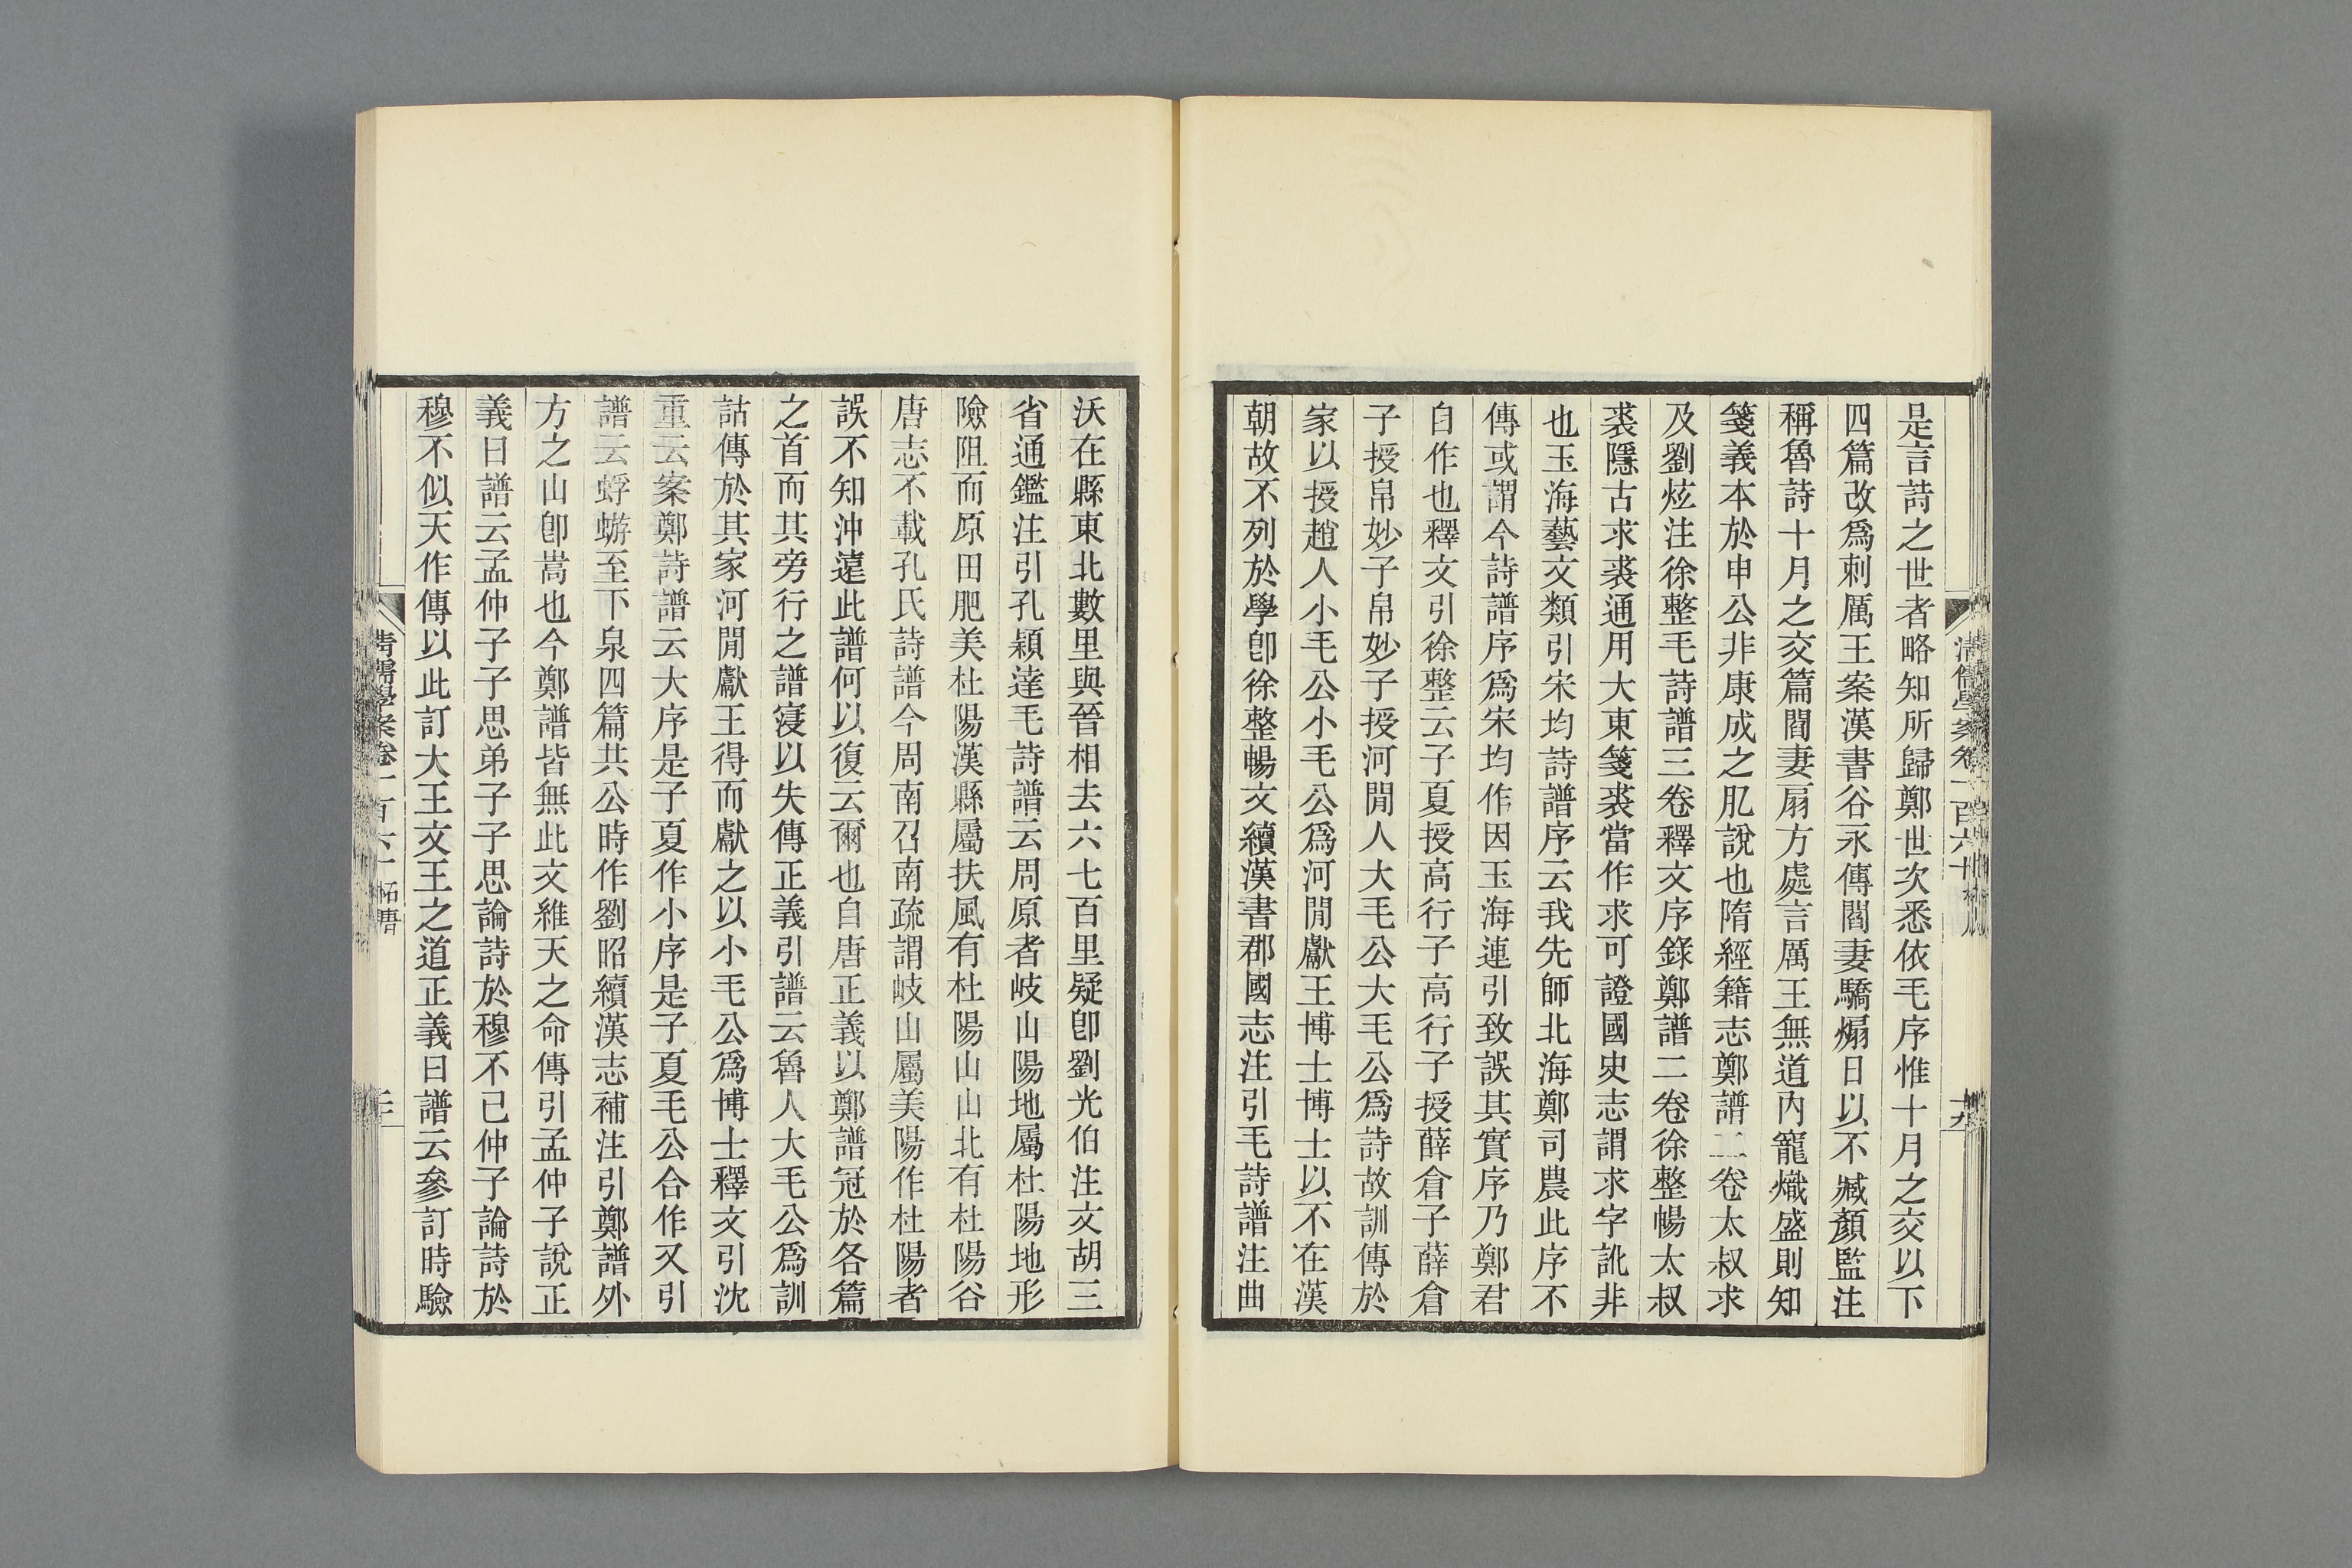 是言詩之世者略知所歸鄭世次悉依毛序惟十月之交以下
四篇改爲刺厲王案漢書谷永傳閻妻驕煽日以不臧顏監注
稱魯詩十月之交篇閻妻扇方處言厲王無道內寵熾盛則知
箋義本於申公非康成之肊說也隋經籍志鄭譜二卷太叔求
及劉炫注徐整毛詩譜三卷釋文序錄鄭譜二卷徐整暢太叔
裘隱古求裘通用大東箋裘當作求可證國史志謂求字訛非
也玉海藝文類引宋均詩譜序云我先師北海鄭司農此序不
傳或謂今詩譜序爲宋均作因玉海連引致誤其實序乃鄭君
自作也釋文引徐整云子夏授高行子高行子授薛倉子薛倉
子授帛妙子帛妙子授河閒人大毛公大毛公爲詩故訓傳於
家以授趙人小毛公小毛公爲河閒獻王博士博士以不在漢
朝故不列於學卽徐整暢文續漢書郡國志注引毛詩譜注曲
沃在縣東北數里與晉相去六七百里疑卽劉光伯注文胡三
省通鑑注引孔穎達毛詩譜云周原者岐山陽地屬杜陽地形
險阻而原田肥美杜陽漢縣屬扶風有杜陽山山北有杜陽谷
唐志不載孔氏詩譜今周南召南疏謂岐山屬美陽作杜陽者
誤不知沖遠此譜何以復云爾也自唐正義以鄭譜冠於各篇
之首而其旁行之譜寖以失傳正義引譜云魯人大毛公爲訓
詁傳於其家河閒獻王得而獻之以小毛公爲博士釋文引沈
重云案鄭詩譜云大序是子夏作小序是子夏毛公合作又引
譜云蜉蝣至下泉四篇共公時作劉昭續漢志補注引鄭譜外
方之山卽嵩也今鄭譜皆無此文維天之命傳引孟仲子說正
義曰譜云孟仲子子思弟子子思論詩於穆不已仲子論詩於
穆不似天作傳以此訂大王文王之道正義曰譜云參訂時驗
清儒學案卷一百六十
十九
清儒學案卷一百六十
二十